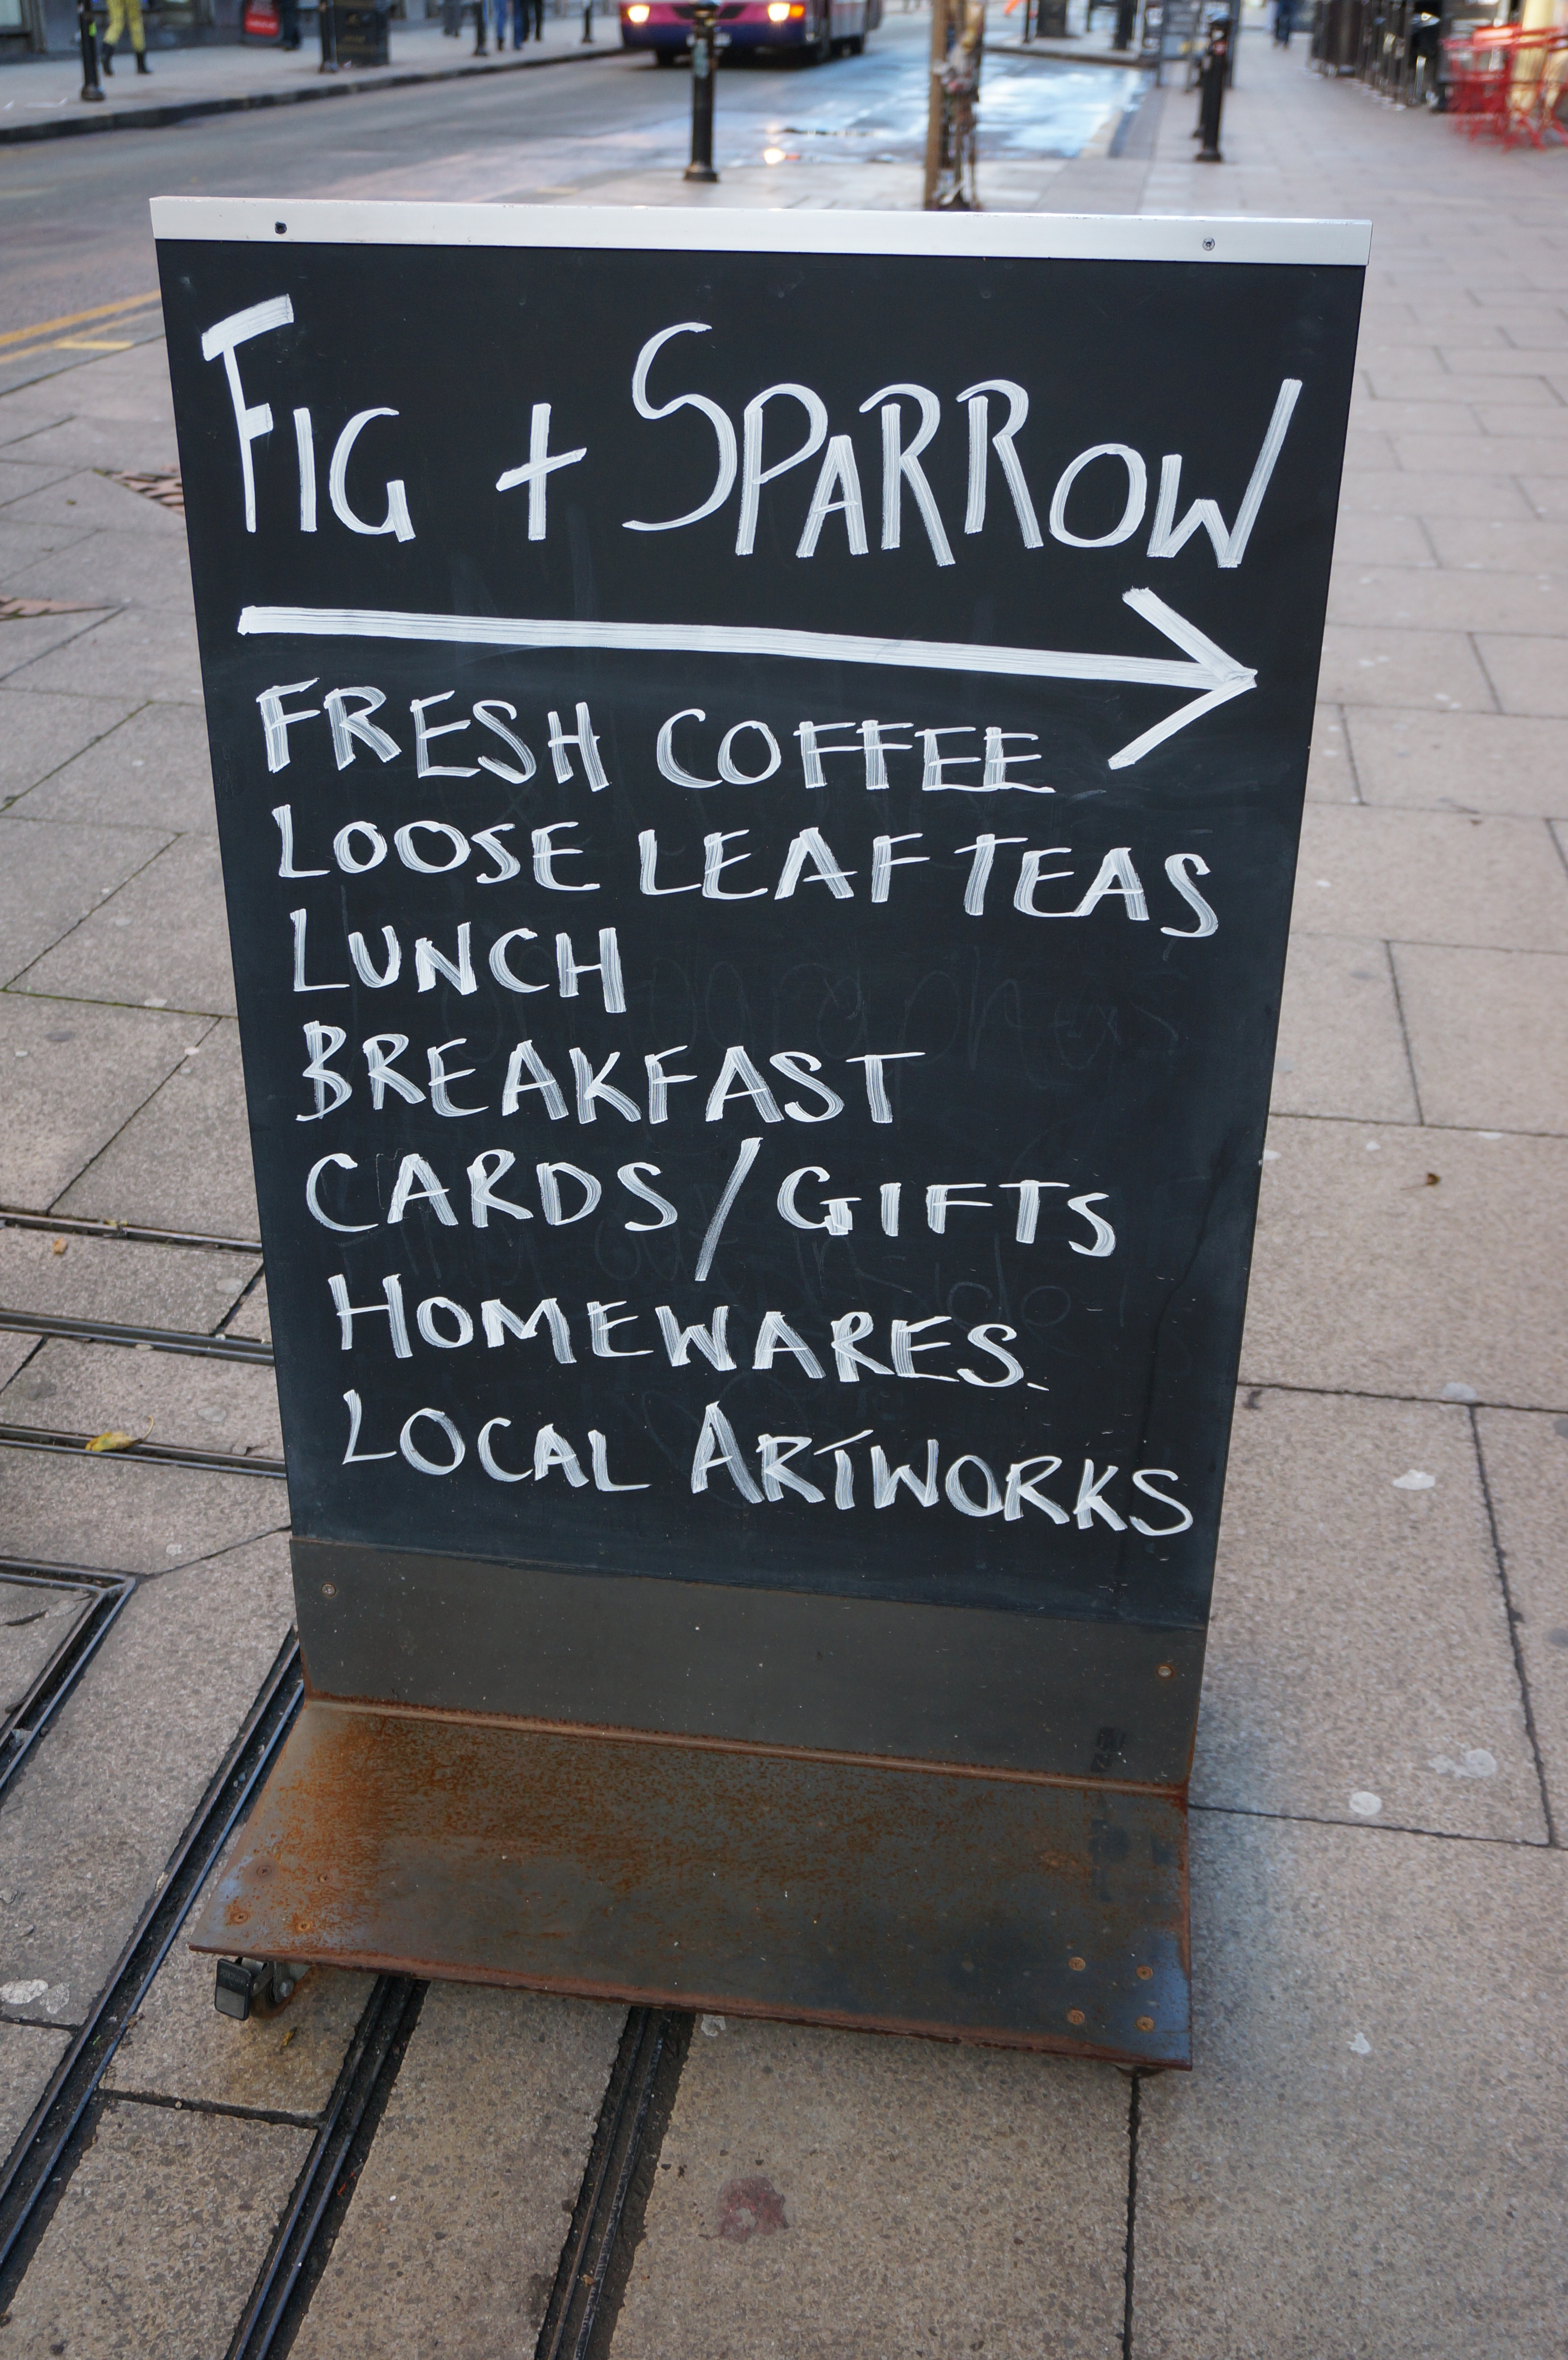 FIG + SPARROW
FRESH COFFEE
LOOSE LEAF TEAS
LUNCH
BREAKFAST
CARDS/GIFTS
HOMEWARES.
LOCAL ARTWORKS